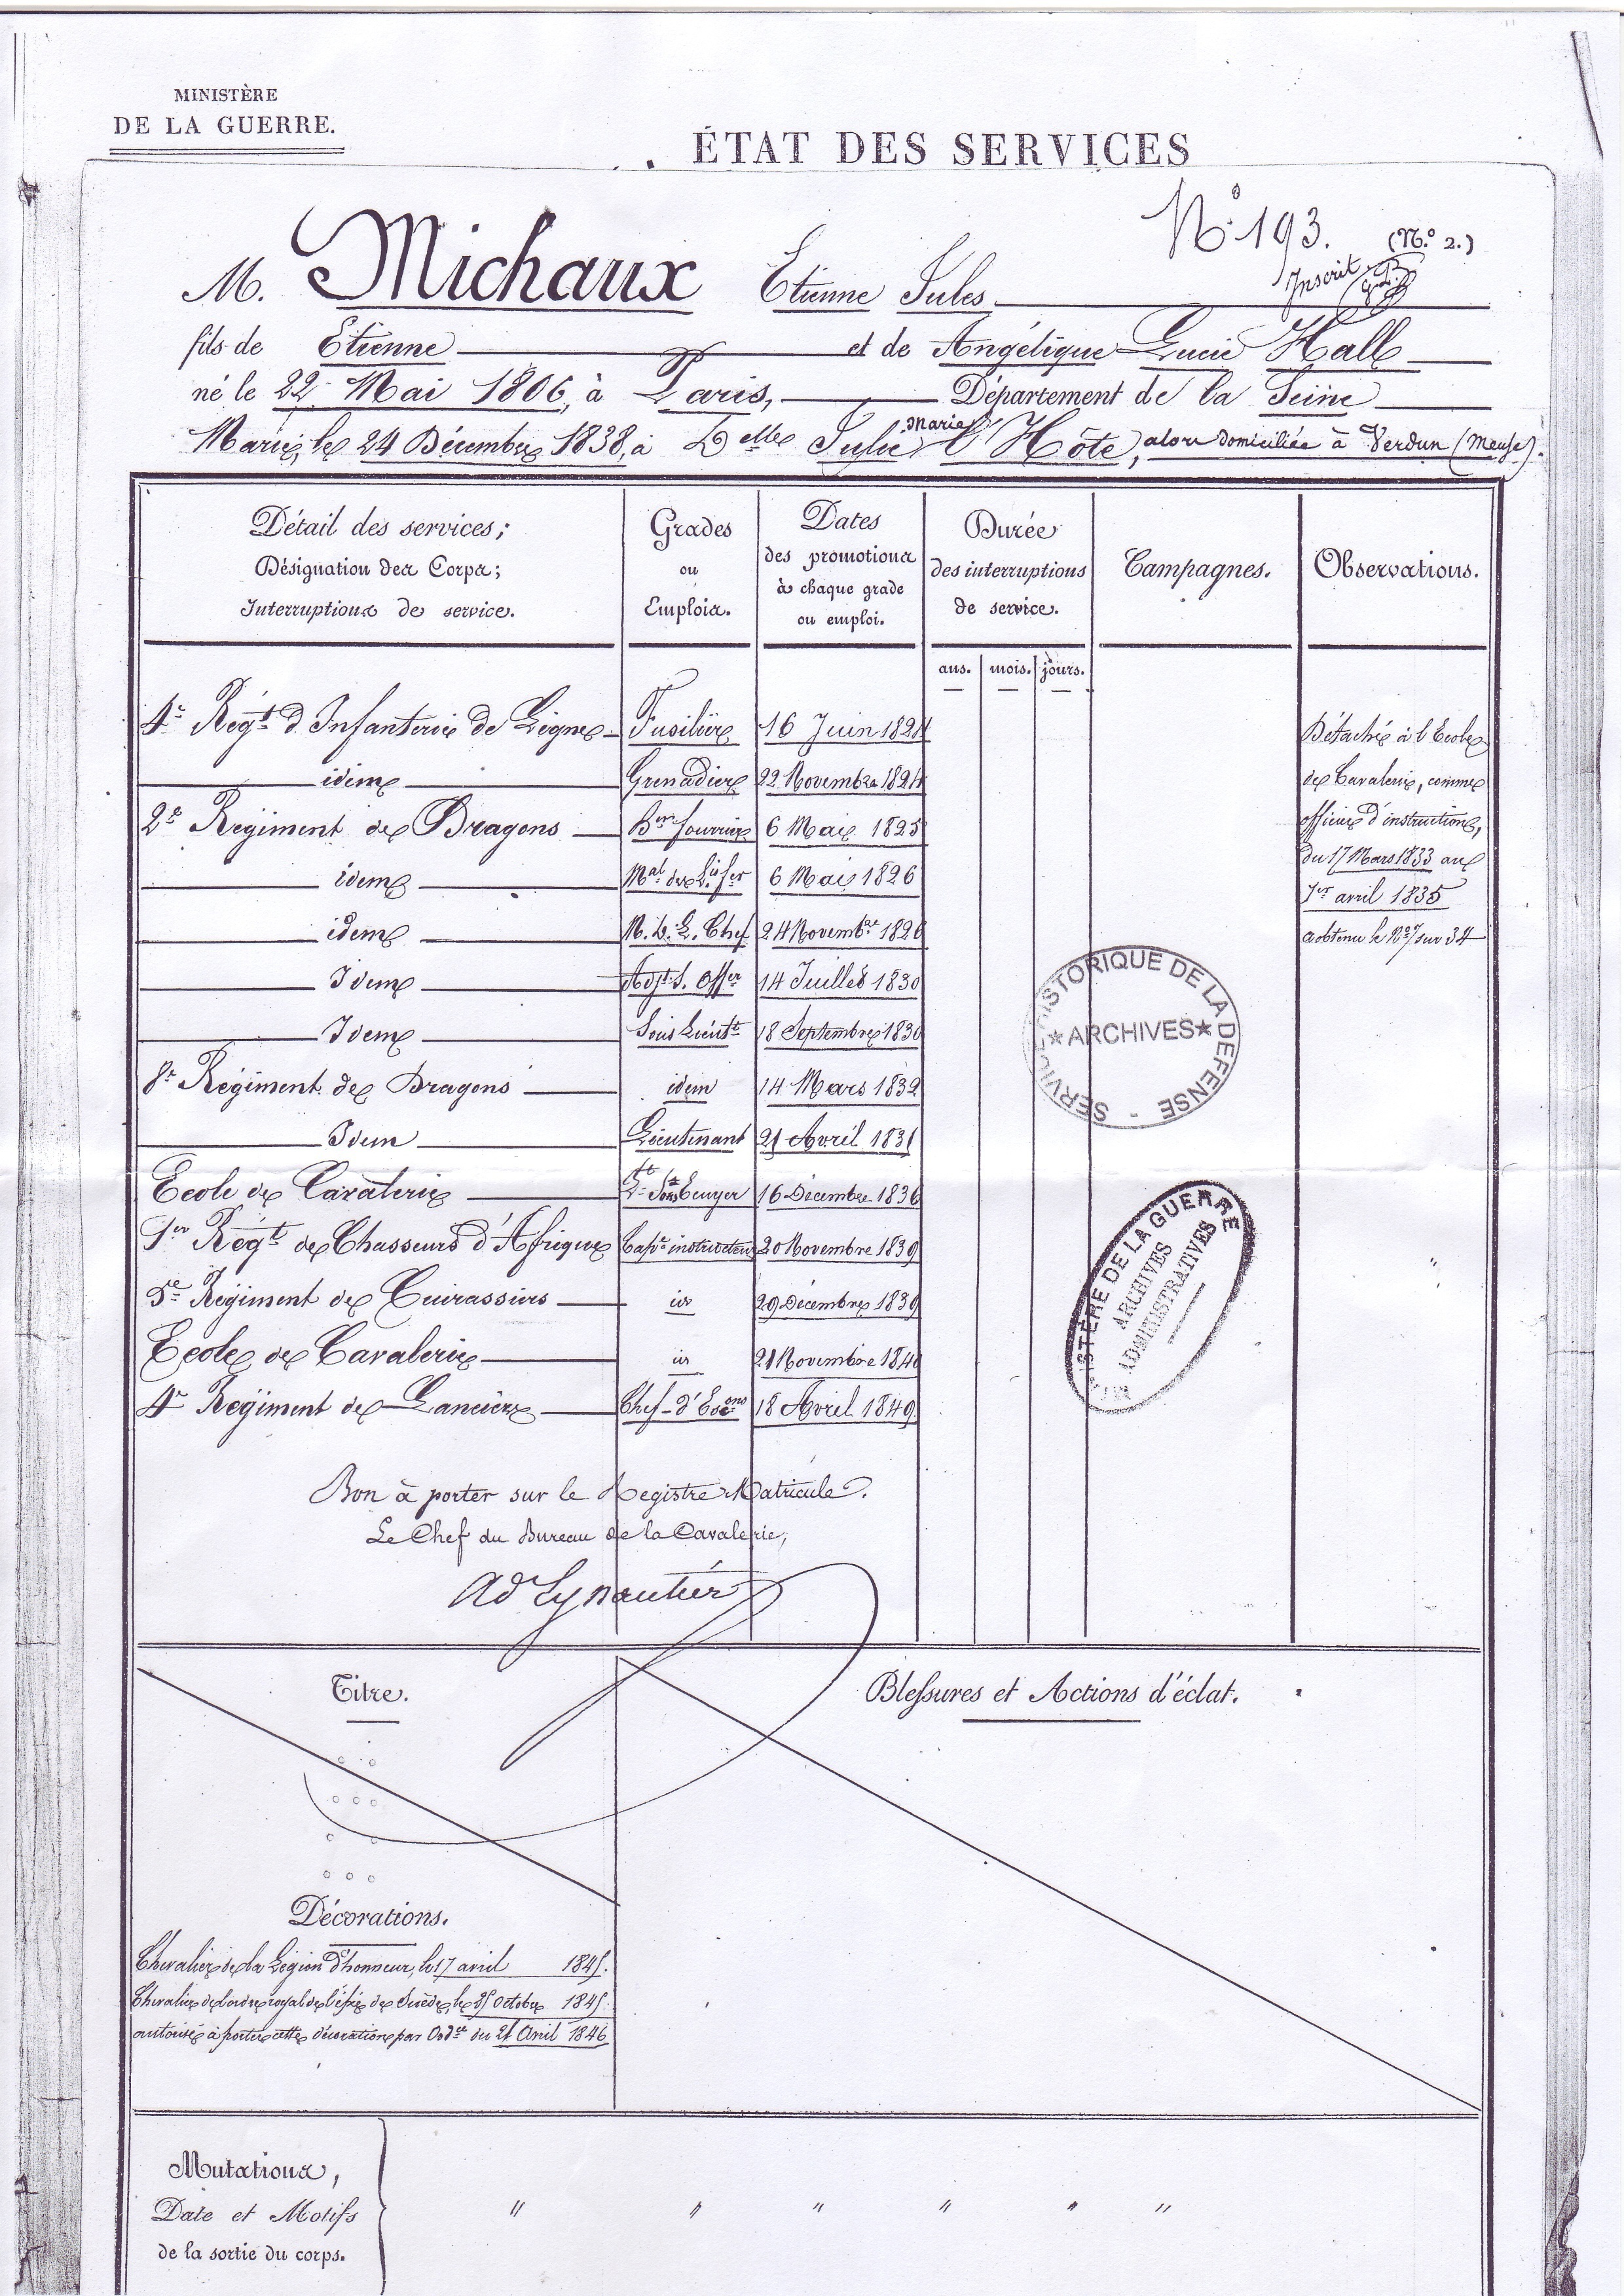 MINISTÈRE
DE LA GUERRE.
ÉTAT DES SERVICES
N° 193.
(N.° 2.)
Inscrit
M. Michaux Etienne Jules
fils de Etienne et de Angélique Lucie Hall
né le 22 Mai 1806, à Paris, Département de la Seine
Marié, le 24 Décembre 1838, à Delle Julie Marie L'Hôte, alors domiciliée à Verdun (Meuse).
Détail des services;
Désignation des Corps;
Interruptions de service.
Grades
ou
Emplois.
Dates
des promotions
à chaque grade
ou emploi.
Durée
des interruptions
de service.
Campagnes.
Observations.
ans. mois. jours.
4e Régt d'Infanterie de Ligne Fusilier 16 Juin 1824
idem Grenadier 22 Novembre 1824
2e Régiment de Dragons Bier fourrier 6 Mai 1825
idem Mal des Lis fer 6 Mai 1826
idem M. D. L. Chef 24 Novembre 1826
Idem Adjt S. Offer 14 Juillet 1830
Idem Sous Lieutt 18 Septembre 1830
8e Régiment de Dragons idem 14 Mars 1832
Idem Lieutenant 21 Avril 1831
Ecole de Cavalerie Lt Sous Ecuyer 16 Décembre 1836
1er Régt de Chasseurs d'Afrique Capne instructeur 20 Novembre 1839
5e Régiment de Cuirassiers id 29 Décembre 1839
Ecole de Cavalerie id 21 Novembre 1840
4e Régiment de Lanciers Chef-d'Escons 18 Avril 1849
Détaché à l'Ecole
de Cavalerie, comme
officier d'instruction,
du 17 Mars 1833 au
1er avril 1835
a obtenu le No 7 sur 34
SERVICE HISTORIQUE DE LA DEFENSE -
★ARCHIVES★
MINISTÈRE DE LA GUERRE
ARCHIVES
ADMINISTRATIVES
Bon à porter sur le Registre Matricule.
Le Chef du Bureau de la Cavalerie,
Titre.
Blessures et Actions d'éclat.
Décorations.
Chevalier de la Légion d'honneur, le 17 avril 1845.
Chevalier de l'ordre royal de l'épée de Suède, le 25 Octobre 1845.
autorisé à porter cette décoration par Ordce du 21 Avril 1846
Mutations,
Date et Motifs
de la sortie du corps.
" " " " " "